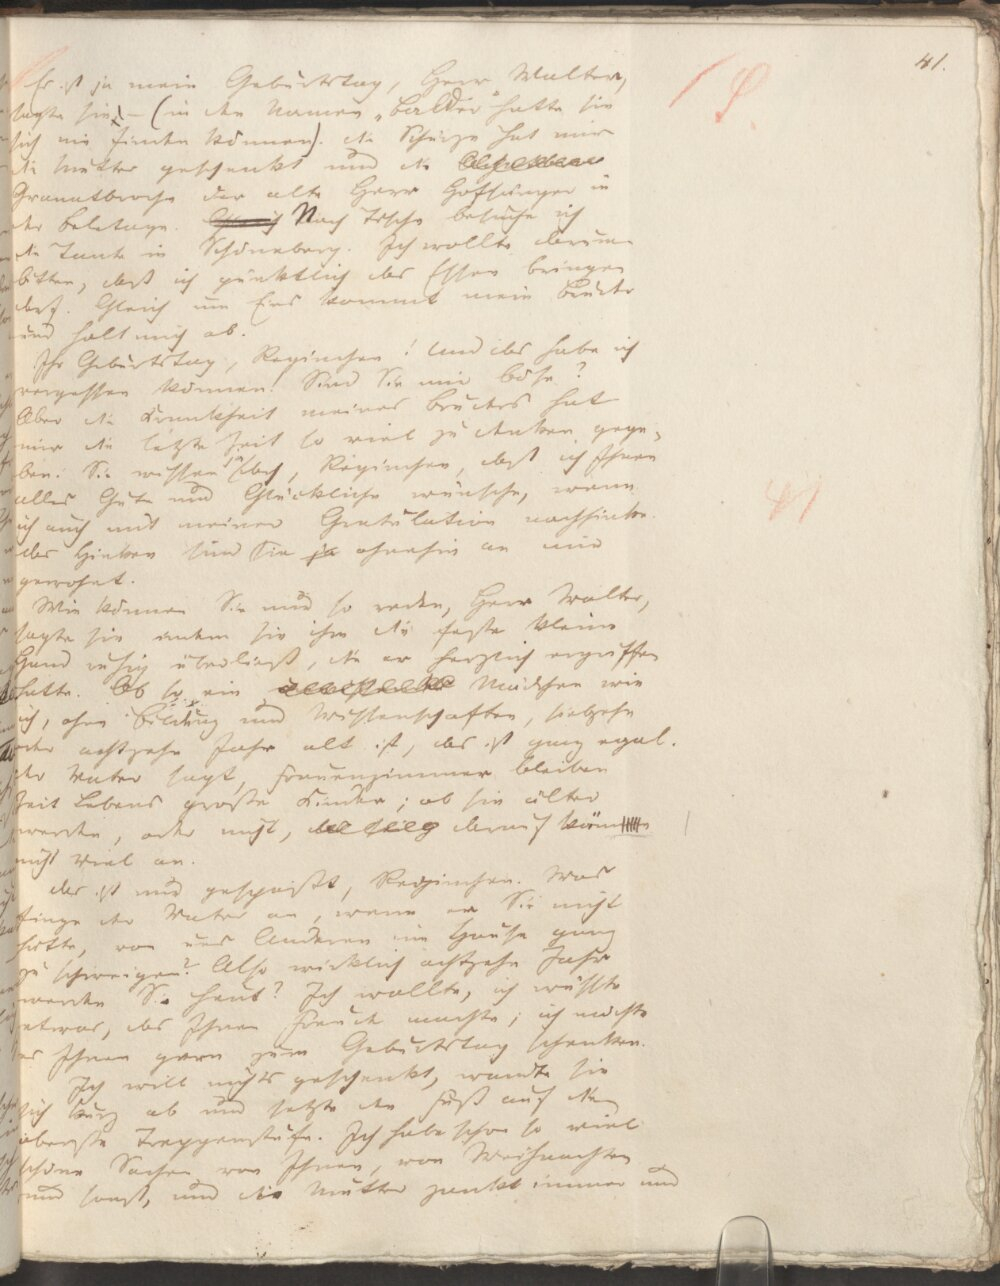 41.
Es ist ja mein Geburtstag, Herr Walter,
sagte sie – (in den Namen „Balder" hatte sie
sich nie finden können). Die Schürze hat mir
die Mutter geschenkt und die
Granatbroche der alte Herr Hofsänger in
der Beletage. Nach Tische besuche ich
die Tante in Schöneberg. Ich wollte darum
bitten, daß ich pünktlich das Essen bringen
darf. Gleich um Eins kommt mein Bruder
und holt mich ab.
Ihr Geburtstag, Reginchen! Und das habe ich
vergessen können! Sind Sie mir böse?
Aber die Krankheit meines Bruders hat
mir die letzte Zeit so viel zu denken gege-
ben. Sie wissen doch, Reginchen, daß ich Ihnen
alles Gute und Glückliche wünsche, wenn
ich auch mit meiner Gratulation nachhinke.
Das Hinken sind Sie ja ohnehin an mir
gewohnt.
Wie können Sie nur so reden, Herr Walter,
sagte sie indem sie ihm die feste kleine
Hand ruhig überließ, die er herzlich ergriffen
hatte. Ob so ein Mädchen wie
ich, ohne Bildung und Wissenschaften, siebzehn
oder achtzehn Jahr alt ist, das ist ganz egal.
Der Vater sagt, Frauenzimmer bleiben
Zeit Lebens große Kinder; ob sie älter
werden, oder nicht, darauf käm
nicht viel an.
Das ist nur gespaßt, Reginchen. Was
finge der Vater an, wenn er Sie nicht
hätte, von uns Anderen im Hause ganz
zu schweigen? Also wirklich achtzehn Jahr
werden Sie heut? Ich wollte, ich wüßte
etwas, das Ihnen Freude machte; ich möchte
es Ihnen gern zum Geburtstag schenken.
Ich will nichts geschenkt, wandte sie
sich kurz ab und setzte den Fuß auf die
oberste Treppenstufe. Ich habe schon so viel
schöne Sachen von Ihnen, von Weihnachten
und sonst, und die Mutter zankt immer und